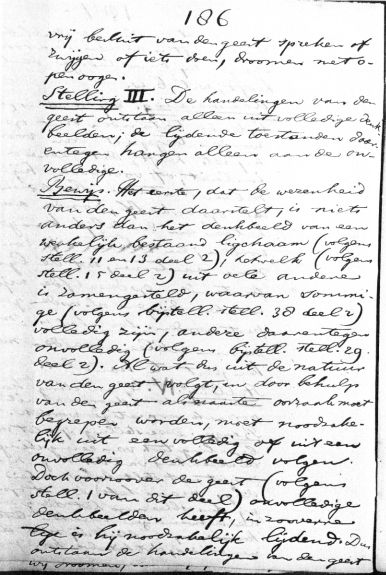 186
vrij besluit van den geest spreken of
zwijgen of iets doen, droomen met o-
pen oogen.
Stelling III. De handelingen van den
geest ontstaan alleen uit volledige denk
beelden; de lijdende toestanden daar
entegen hangen alleen aan de on-
volledige.
Bewijs. Het eerste, dat de wezenheid
van den geest daarstelt, is niets
anders dan het denkbeeld van een
werkelijk bestaand ligchaam (volgens
stell. 11 en 13 deel 2), hetwelk (volgens
stell. 15 deel 2) uit vele andere
is zamengesteld, waarvan sommi-
ge (volgens bijstell. stell. 38 deel 2)
volledig zijn, andere daarentegen
onvolledig (volgens bijstell. stell. 29
deel 2). Al wat dus uit de natuur
van den geest volgt, en door behulp
van den geest als naaste oorzaak moet
begrepen worden, moet noodzake-
lijk uit een volledig of uit een
onvolledig denkbeeld volgen.
Doch voorzoover de geest (volgens
stell. 1 van dit deel) onvolledige
denkbeelden heeft, in zooverre
is hij noodzakelijk lijdend. Dus
ontstaan de handelingen van den geest